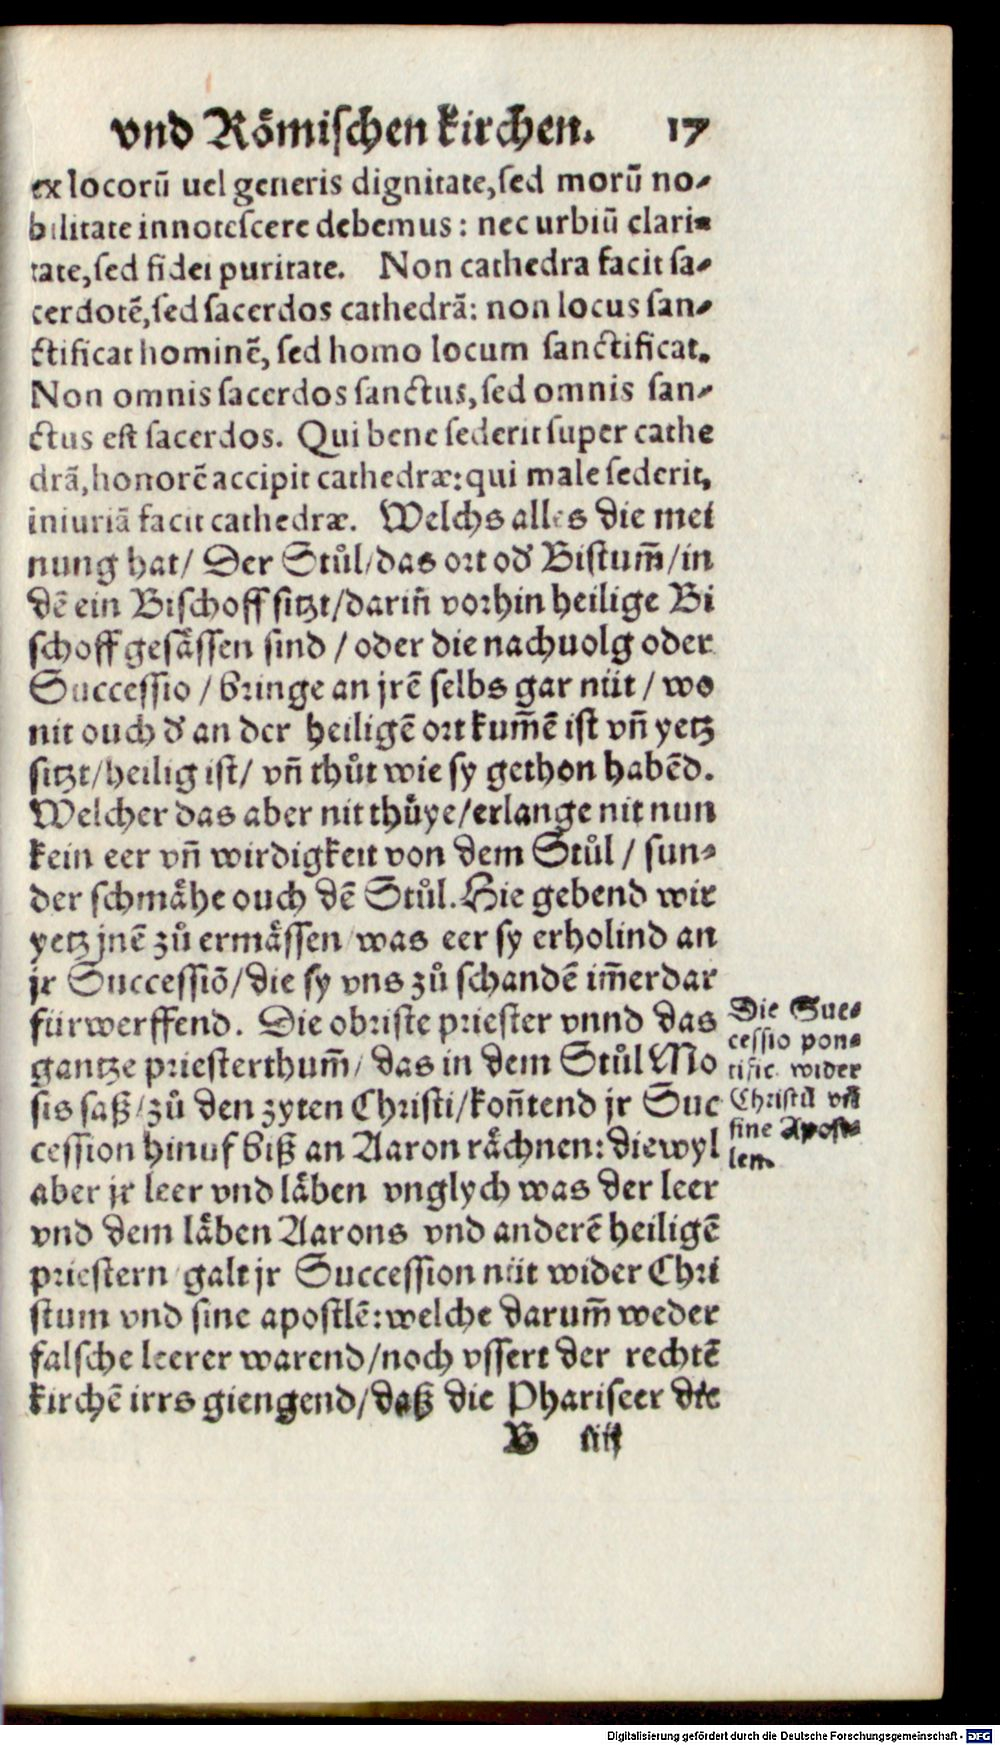 vnd Roͤmischen kirchen. 17
ex locorū uel generis dignitate, sed morū no-
bilitate innotescere debemus: nec urbiū clari-
tate, sed fidei puritate. Non cathedra facit sa-
cerdotē, sed sacerdos cathedrā: non locus san-
ctificat hominē, sed homo locum sanctificat.
Non omnis sacerdos sanctus, sed omnis san-
ctus est sacerdos. Qui bene sederit super cathe
drā, honorē accipit cathedræ: qui male sederit,
iniuriā facit cathedræ. Welchs alles die mei
nung hat/ Der Stuͦl/das ort od' Bistum̄/in
dē ein Bischoff sitzt/darin̄ vorhin heilige Bi
schoff gesaͤssen sind / oder die nachuolg oder
Successio / bringe an jrē selbs gar nüt / wo
nit ouch d' an der heiligē ort kum̄ē ist vn̄ yetz
sitzt/heilig ist/ vn̄ thuͦt wie sy gethon habēd.
Welcher das aber nit thuͤye/erlange nit nun
kein eer vn̄ wirdigkeit von dem Stuͦl / sun-
der schmaͤhe ouch dē Stuͦl. Hie gebend wir
yetz jnē zuͦ ermaͤssen/was eer sy erholind an
jr Successiō/die sy vns zuͦ schandē im̄erdar
fürwerffend. Die obriste priester vnnd das
gantze priesterthum̄/ das in dem Stuͦl Mo
sis saß/zuͦ den zyten Christi/kon̄tend jr Suc
cession hinuf biß an Aaron raͤchnen: diewyl
aber jr leer vnd laͤben vnglych was der leer
vnd dem laͤben Aarons vnd anderē heiligē
priestern/galt jr Succession nüt wider Chri
stum vnd sine apostlē: welche darum̄ weder
falsche leerer warend/noch vssert der rechtē
kirchē irrs giengend/daß die Phariseer die
B iij
Die Suc-
cessio pon-
tific. wider
Christū vn̄
sine Apost-
len.
Digitalisierung gefördert durch die Deutsche Forschungsgemeinschaft - DFG